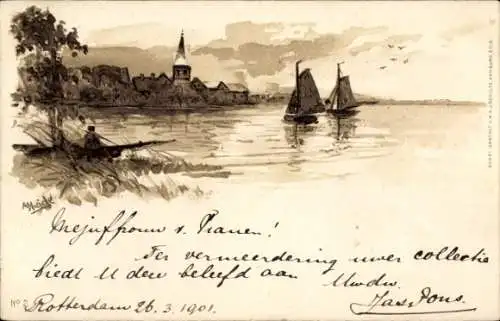 Mejufrouw v. Pranen!
Ter vermeerdering uwer collectie
biedt U deze beleefd aan Uwdw.
Jas Pons.
No
Rotterdam 26.3.1901.